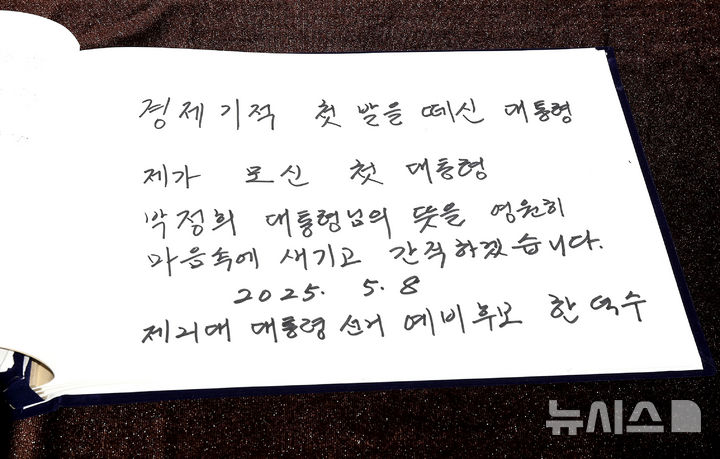 경제기적 첫 발을 떼신 대통령
제가 모신 첫 대통령
박정희 대통령님의 뜻을 영원히
마음속에 새기고 간직하겠습니다.
2025. 5. 8
제21대 대통령선거 예비후보 한덕수
뉴시스